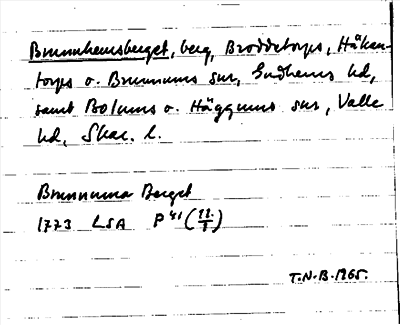 Brunnhemsberget, berg, Broddetorps, Håken-
torps o. Brunnums snr, Gudhems hd,
samt Bolums o. Häggums snr, Valle
hd, Skar. l.
Brunnuma Berget
1773 LSA P41 (11/1)
T.N-B. 1965.